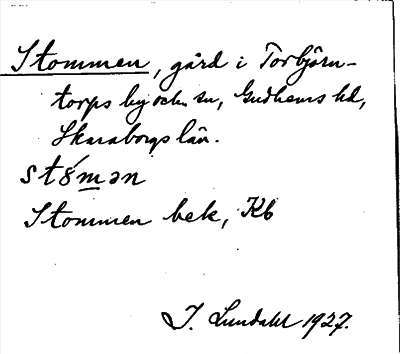 Stommen, gård i Torbjörn-
torps by och sn, Gudhems hd,
Skaraborgs län.
stómən
Stommen bek, Kb
J. Lundahl 1927.